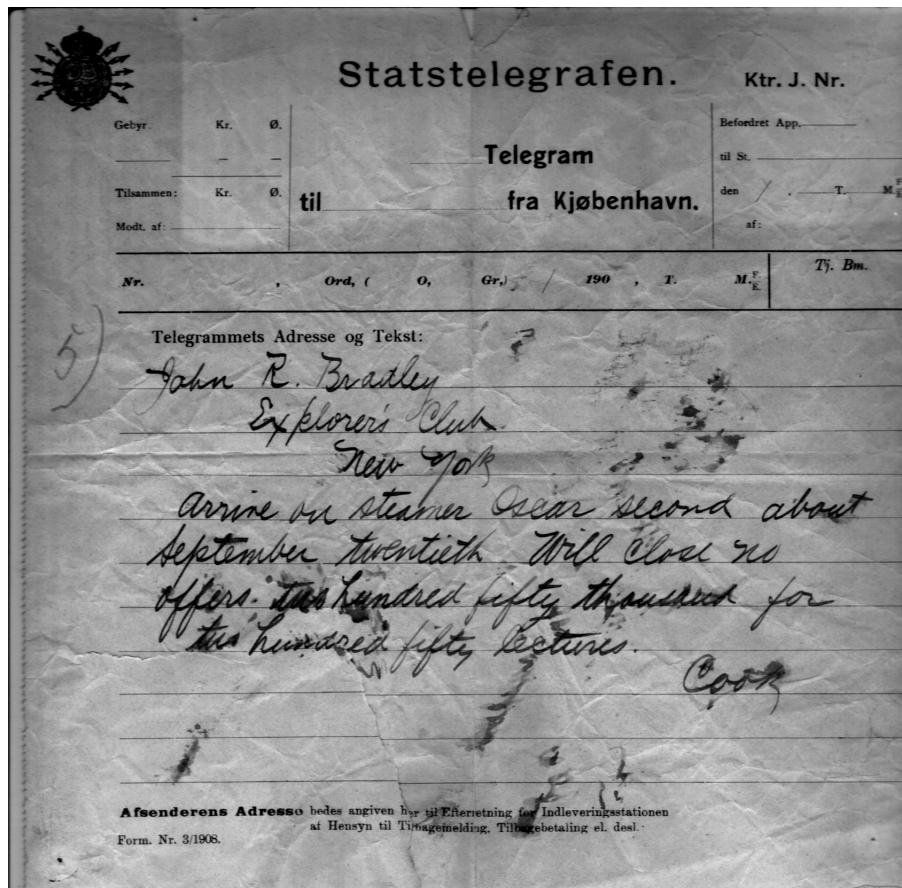 Statstelegrafen.
Ktr. J. Nr.
Gebyr. Kr. Ø.
Befordret App.
Telegram
til St.
Tilsammen: Kr. Ø.
til fra Kjøbenhavn.
den T. M. F. E.
Modt. af:
af:
Nr. , Ord, ( O, Gr,) 190 , T. M. F. E.
Tj. Bm.
5)
Telegrammets Adresse og Tekst:
John R. Bradley
Explorer's Club
New York
Arrive on steamer Oscar second about
September twentieth Will close no
offers. two hundred fifty thousand for
two hundred fifty lectures.
Cook
Afsenderens Adresse bedes angiven her til Efterretning for Indleveringsstationen
af Hensyn til Tilbagemelding, Tilbagebetaling el. desl.
Form. Nr. 3/1908.